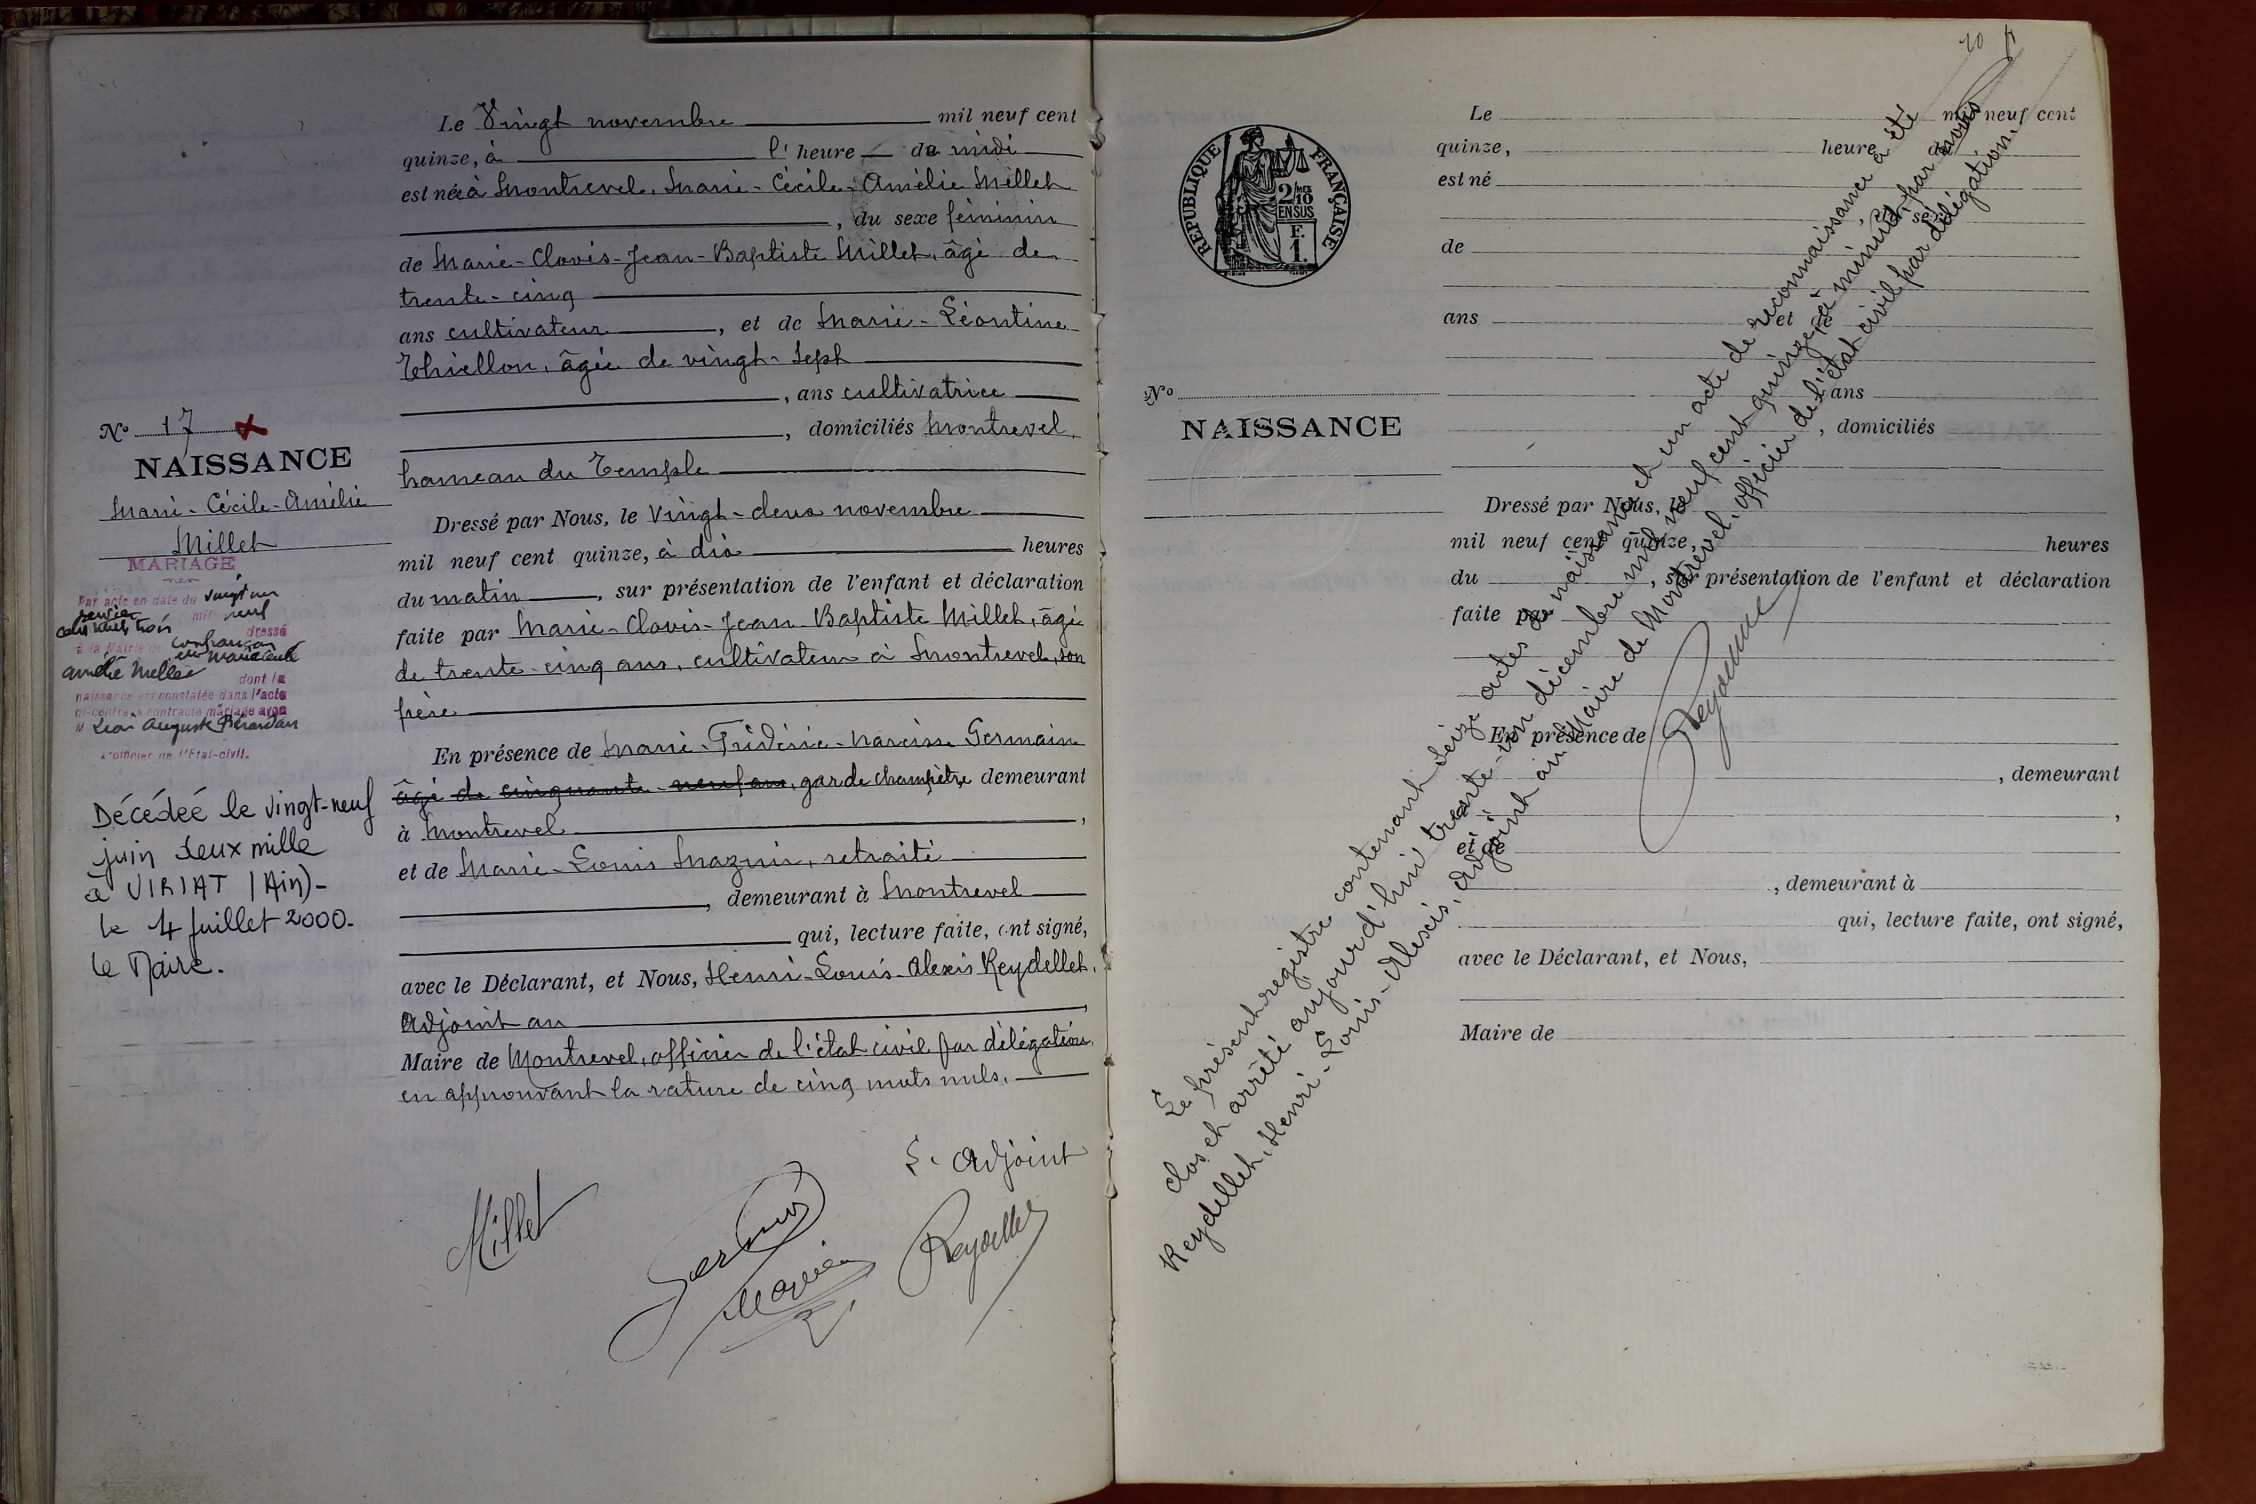 Le Vingt novembre mil neuf cent
quinze, à l'heure de midi
est née à Montrevel, Marie-Cécile-Amélie Millet
, du sexe féminin
de Marie-Clovis-Jean-Baptiste Millet, âgé de
trente-cinq
ans cultivateur , et de Marie-Léontine
Thiellon, âgée de vingt-sept
, ans cultivatrice
, domiciliés Montrevel,
hameau du Temple
Dressé par Nous, le Vingt-deux novembre
mil neuf cent quinze, à dix heures
du matin , sur présentation de l'enfant et déclaration
faite par Marie-Clovis-Jean-Baptiste Millet, âgé
de trente-cinq ans, cultivateur à Montrevel, son
père
En présence de Marie-Frédéric-Narcisse Germain
âgé de cinquante-neuf ans, garde champêtre demeurant
à Montrevel ,
et de Marie-Louis Mazuir, retraité
, demeurant à Montrevel
qui, lecture faite, ont signé,
avec le Déclarant, et Nous, Henri-Louis-Alexis Reydellet,
Adjoint au ,
Maire de Montrevel, officier de l'état civil par délégation,
en approuvant la rature de cinq mots nuls.
L'adjoint
Millet
Reydellet
No 17
NAISSANCE
Marie-Cécile-Amélie
Millet
MARIAGE
Par acte en date du vingt un
janvier mil neuf
cent trois
dressé
à la Mairie de
dont la
naissance est constatée dans l'acte
ci-contre a contracté mariage avec
M Léon Auguste
L'officier de l'Etat-civil.
Décédée le vingt-neuf
juin deux mille
à VIRIAT (Ain)-
le 4 Juillet 2000.
le Maire.
20
REPUBLIQUE FRANÇAISE
2/10
EN SUS
F.
1.
No
NAISSANCE
Le mil neuf cent
quinze, heure de
est né
, du sexe
de
ans et de
ans
, domiciliés
Dressé par Nous, le
mil neuf cent quinze, heures
du , sur présentation de l'enfant et déclaration
faite par
En présence de
, demeurant
,
et de
, demeurant à
qui, lecture faite, ont signé,
avec le Déclarant, et Nous,
Maire de
Le présent registre contenant seize actes de naissance et un acte de reconnaissance a été
clos et arrêté aujourd'hui trente-un décembre mil neuf cent quinze, à minuit, par nous
Reydellet, Henri-Louis-Alexis, Adjoint au Maire de Montrevel, officier de l'état civil par délégation.
Reydellet